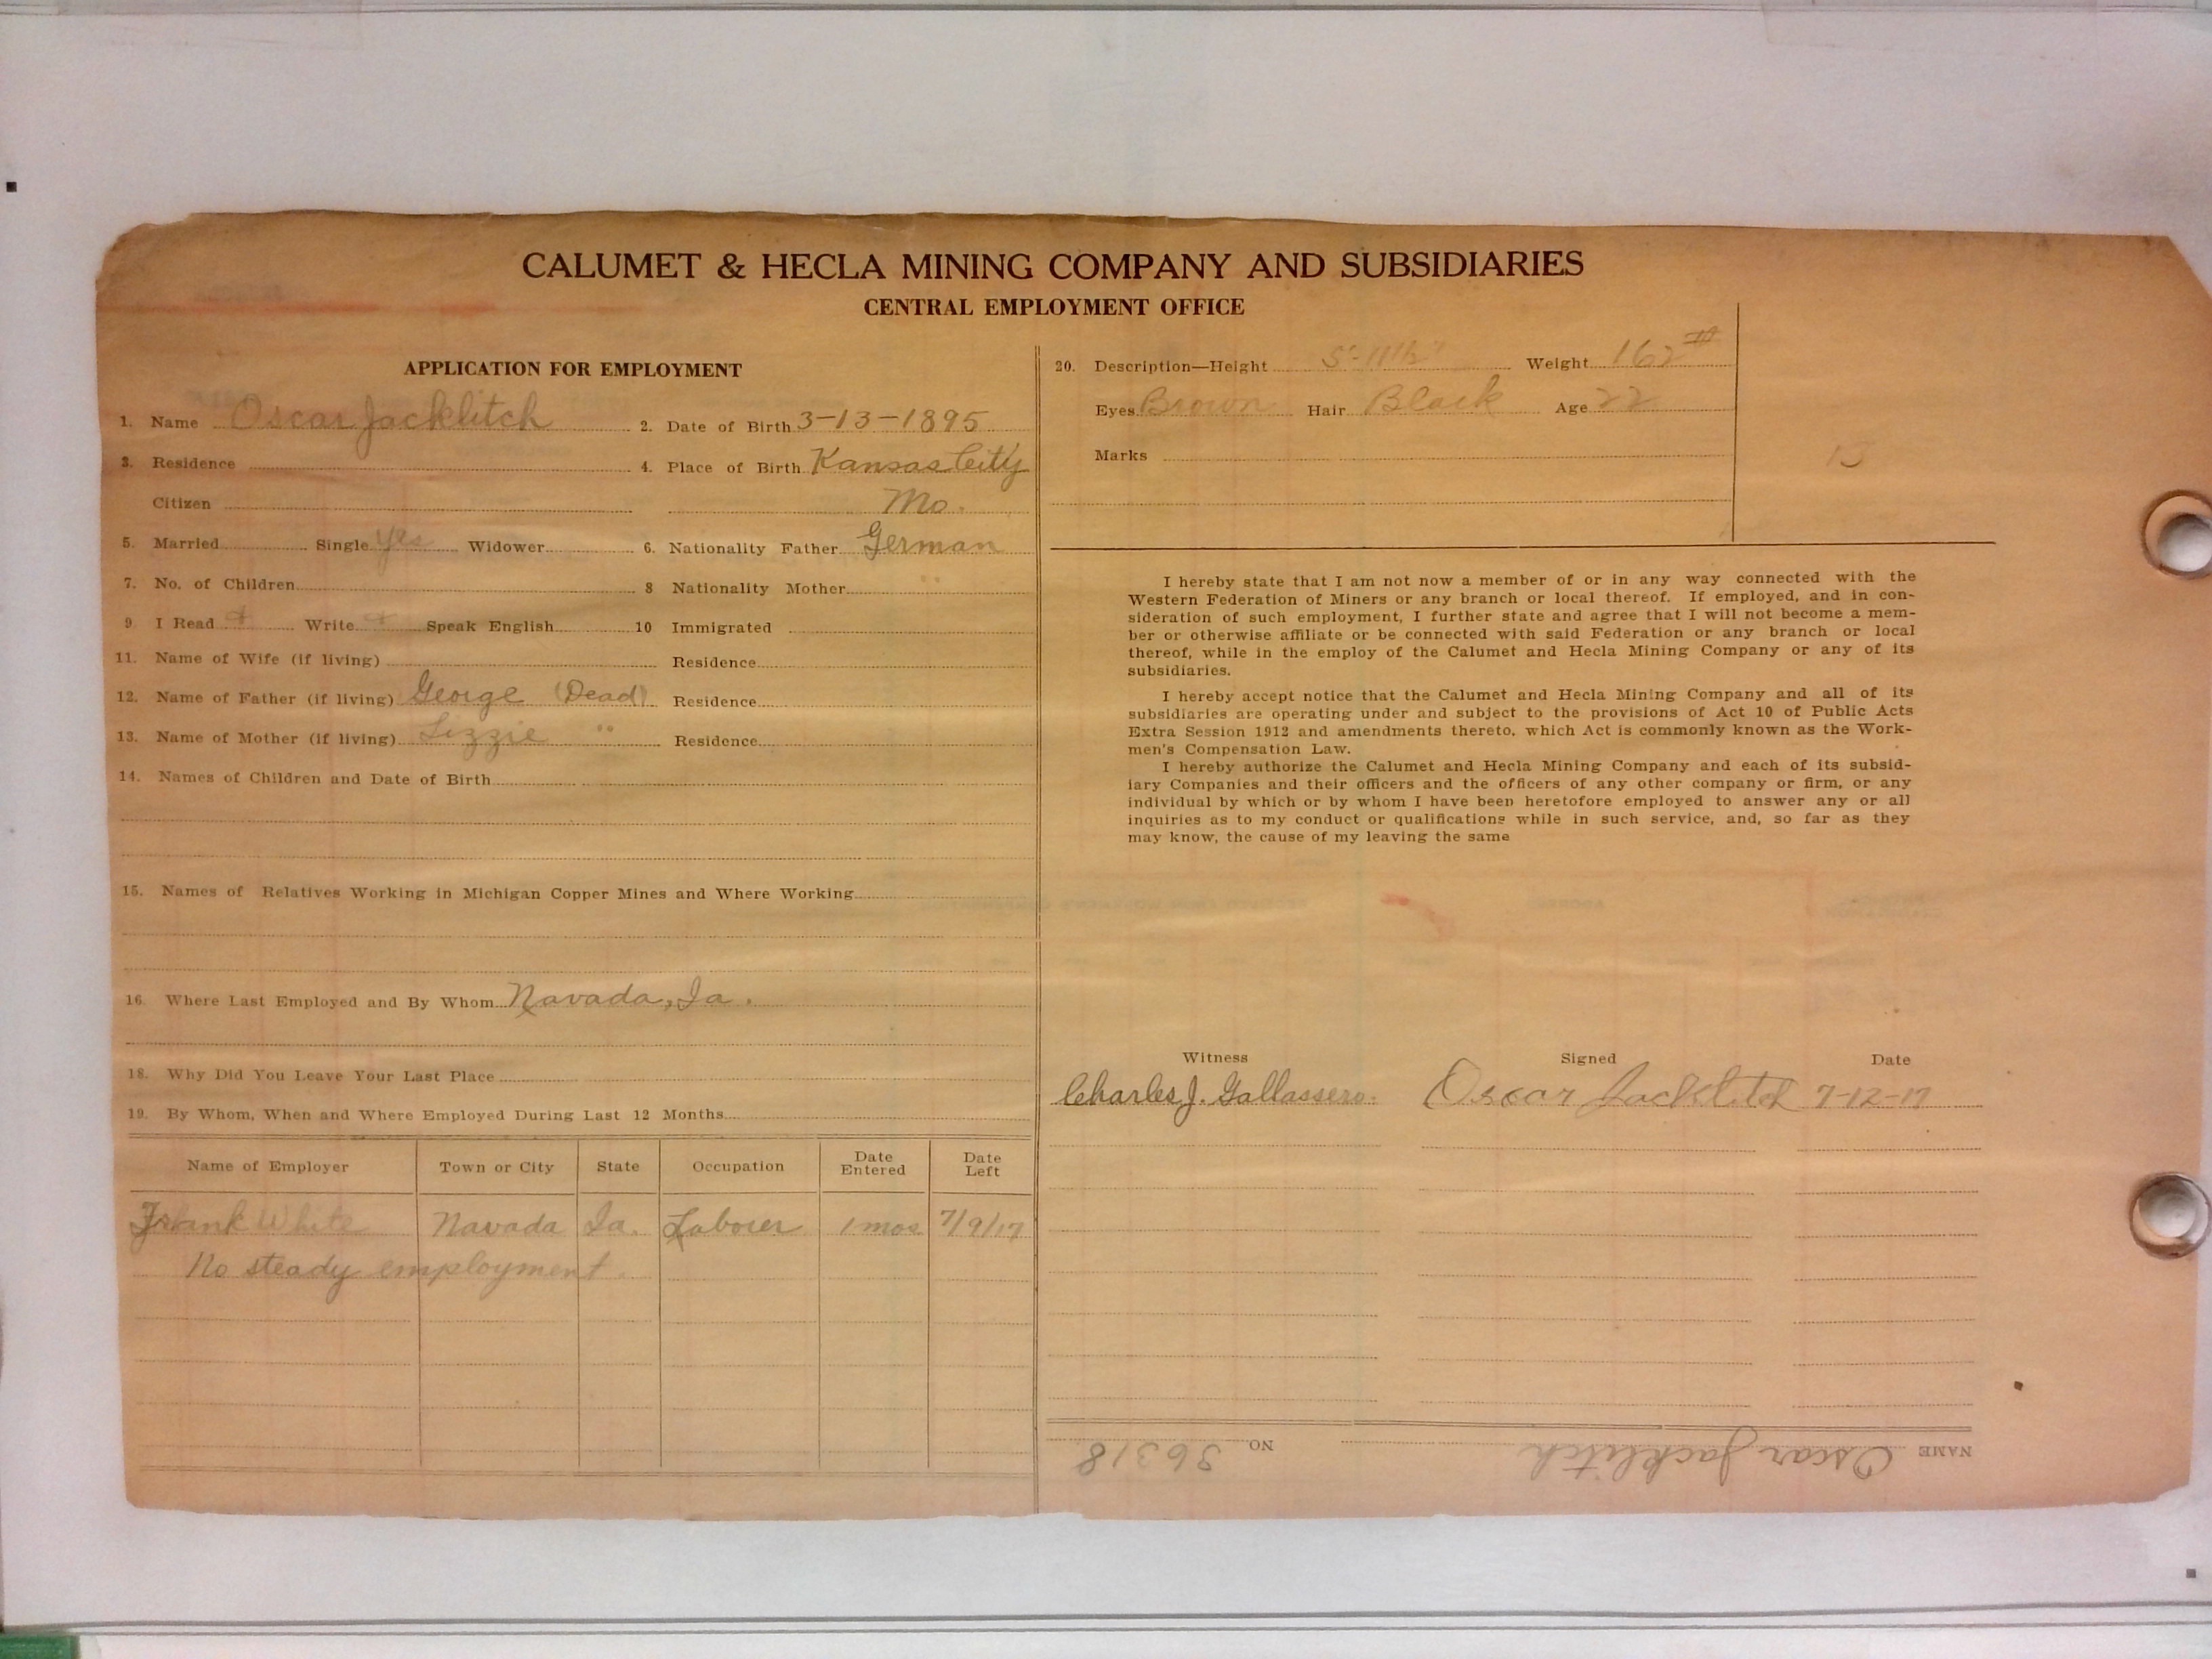 CALUMET & HECLA MINING COMPANY AND SUBSIDIARIES
CENTRAL EMPLOYMENT OFFICE
APPLICATION FOR EMPLOYMENT
1. Name Oscar Jacklitch 2. Date of Birth 3-13-1895
3. Residence 4. Place of Birth Kansas City
Citizen Mo.
5. Married Single Yes Widower 6. Nationality Father German
7. No. of Children 8 Nationality Mother "
9. I Read Write Speak English 10 Immigrated
11. Name of Wife (if living) Residence
12. Name of Father (if living) George (Dead) Residence
13. Name of Mother (if living) Lizzie " Residence
14. Names of Children and Date of Birth
15. Names of Relatives Working in Michigan Copper Mines and Where Working
16. Where Last Employed and By Whom Navada, Ia.
18. Why Did You Leave Your Last Place
19. By Whom, When and Where Employed During Last 12 Months
Name of Employer Town or City State Occupation Date Entered Date Left
Frank White Navada Ia. Laborer 1 mos 7/9/17
No steady employment.
20. Description—Height 5'-11½" Weight 162#
Eyes Brown Hair Black Age 22
Marks
13
I hereby state that I am not now a member of or in any way connected with the
Western Federation of Miners or any branch or local thereof. If employed, and in con-
sideration of such employment, I further state and agree that I will not become a mem-
ber or otherwise affiliate or be connected with said Federation or any branch or local
thereof, while in the employ of the Calumet and Hecla Mining Company or any of its
subsidiaries.
I hereby accept notice that the Calumet and Hecla Mining Company and all of its
subsidiaries are operating under and subject to the provisions of Act 10 of Public Acts
Extra Session 1912 and amendments thereto, which Act is commonly known as the Work-
men's Compensation Law.
I hereby authorize the Calumet and Hecla Mining Company and each of its subsid-
iary Companies and their officers and the officers of any other company or firm, or any
individual by which or by whom I have been heretofore employed to answer any or all
inquiries as to my conduct or qualifications while in such service, and, so far as they
may know, the cause of my leaving the same
Witness Signed Date
Charles J. Gallassero. Oscar Jacklitch 7-12-17
NAME Oscar Jacklitch NO. 36318